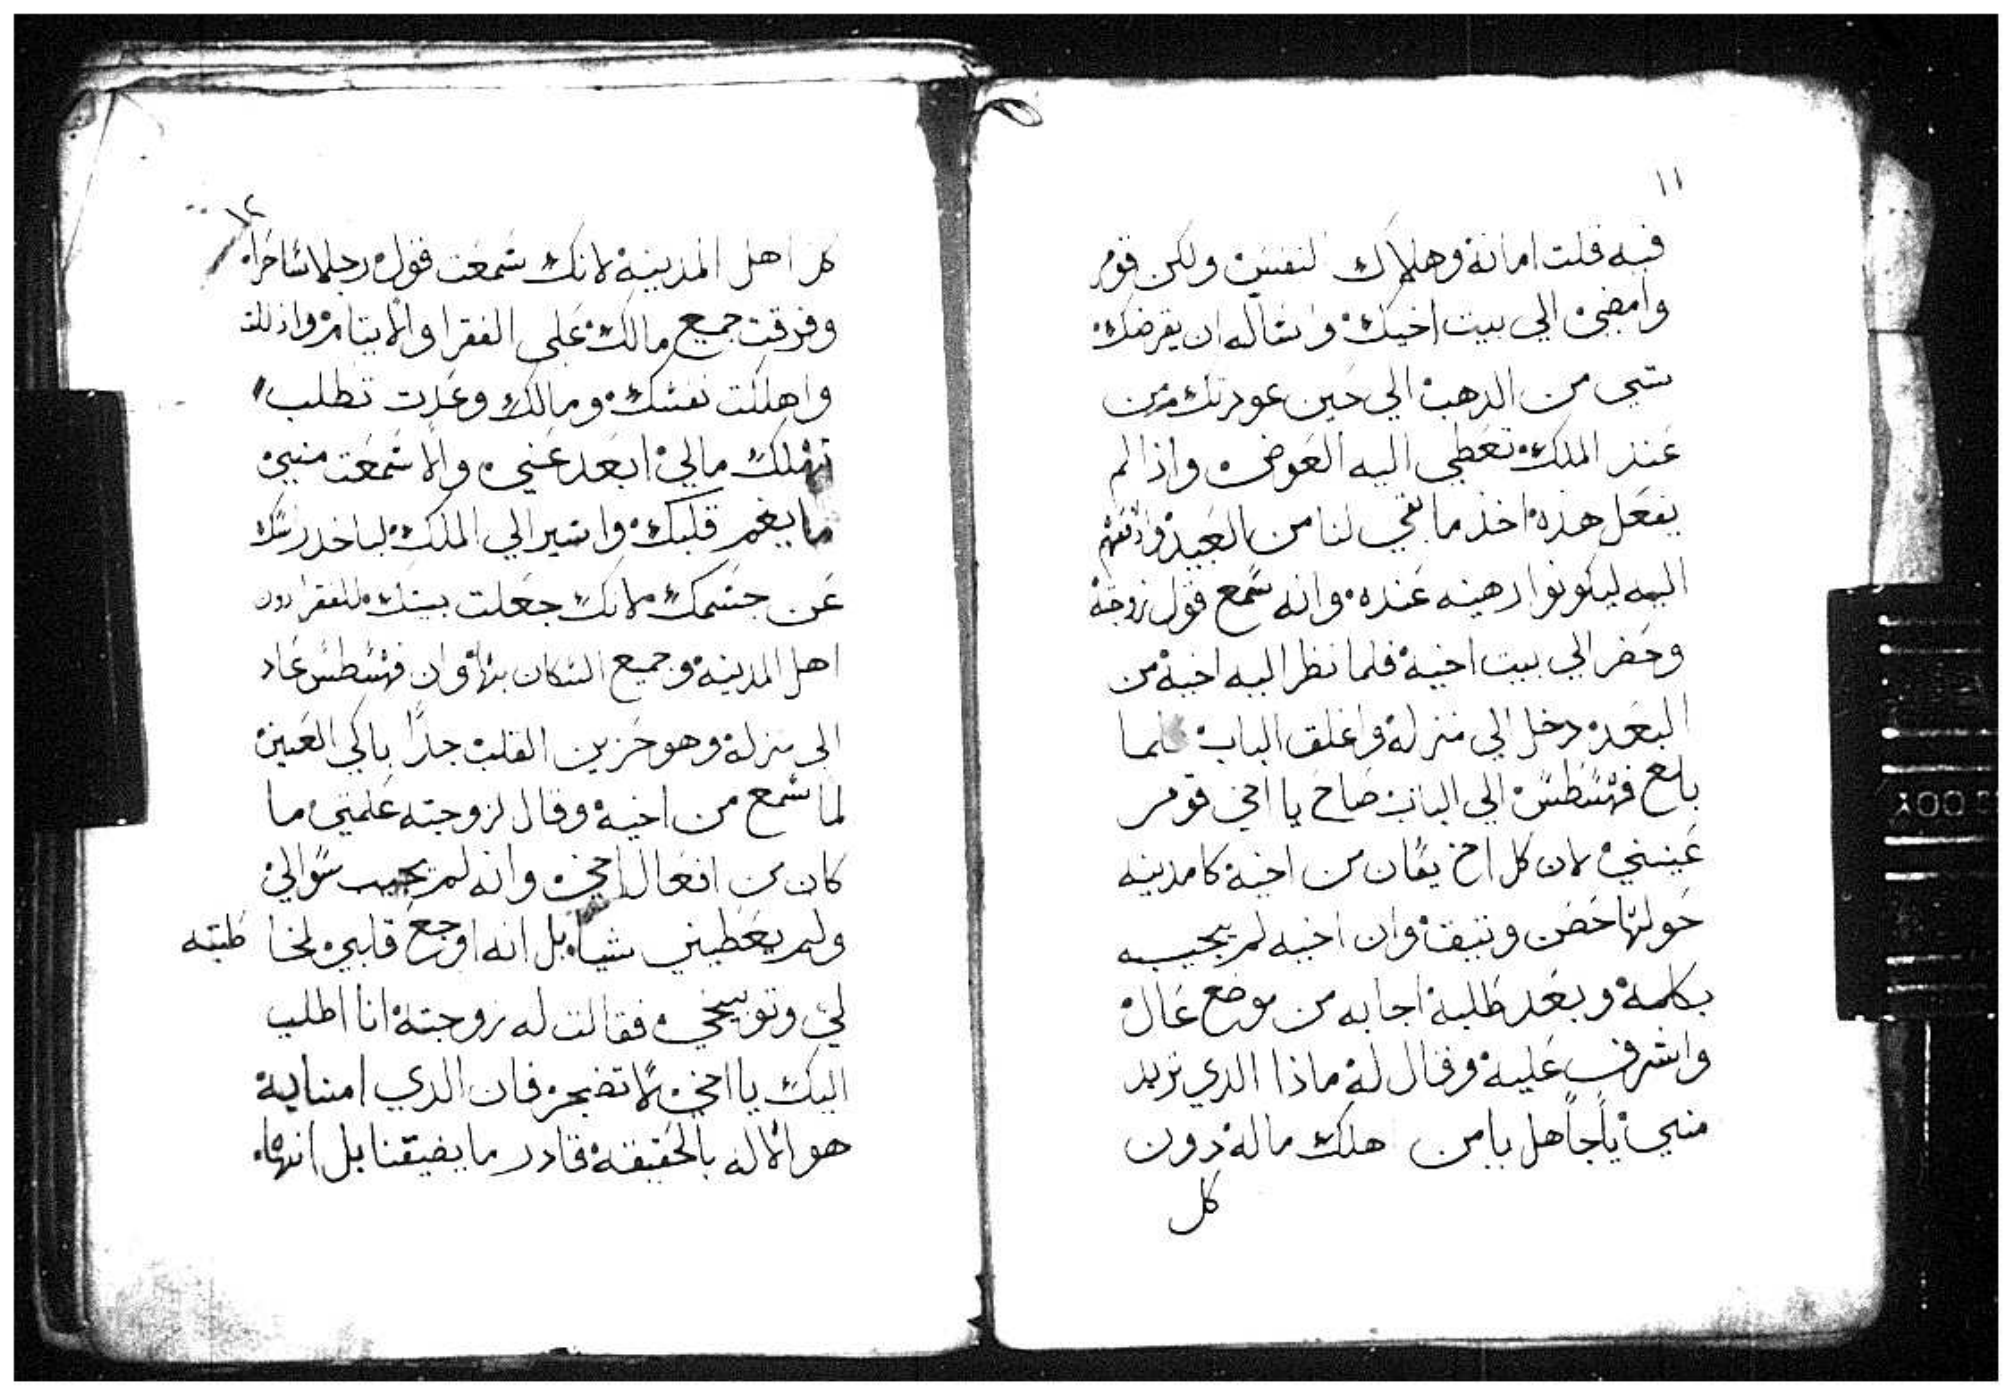 ١١
فيه قلت امانة وهلاك لنفسين ولكن قوم
وامضي الي بيت اخيك واساله ان يقرضك
شي من الدهب الي حين عودتك من
عند الملك تعطي اليه العوض واذا لم
يفعل هذه اخذ ما بقي لنا من العبيد وادفعهم
اليه ليكونوا رهينه عنده وانه سمع قول زوجته
وحضر الي بيت اخية فلما نظر اليه اخية من
البعد دخل الي منزلة واغلق الباب فلما
بلغ فهسطس الي الباب صاح يا اخي قوم
عينني لان كل اخ يعان من اخية كامدينه
حولتها حصن وتيقة وان اخيه لم يجيبه
بكلمة وبعد طلبة اجابه من موضع عال
واشرف علية وقال لة ماذا الدي تريد
مني يا جاهل يا من هلك مالة دون
كل
١٢
كل اهل المدينة لانك سمعت قول رجلا ساحرا
وفرقت جميع مالك علي الفقرا والايتام واذللت
واهلكت نفسك ومالك وعدت تطلب
تهلك مالي ابعد عني والا سمعت مني
ما يغم قلبك واسير الي الملك لياخد راسك
عن جسمك لانك جعلت بيتك للفقرا دون
اهل المدينة وجميع السكان بها وان فهسطس عاد
الى منزلة وهو حزين القلب جدا باكي العين
لما سمع من اخية وقال لزوجته علمتي ما
كان من افعال اخي وانه لم يجيب سوالي
ولم يعطيني شيا بل انه اوجع قلبي لمخا طبته
لي وتوبيخي فقالت له زوجتة انا اطلب
اليك يا اخي لا تضجر فان الدي امنا بة
هو الاله بالحقيقة قادر ما يضيقنا بل انها